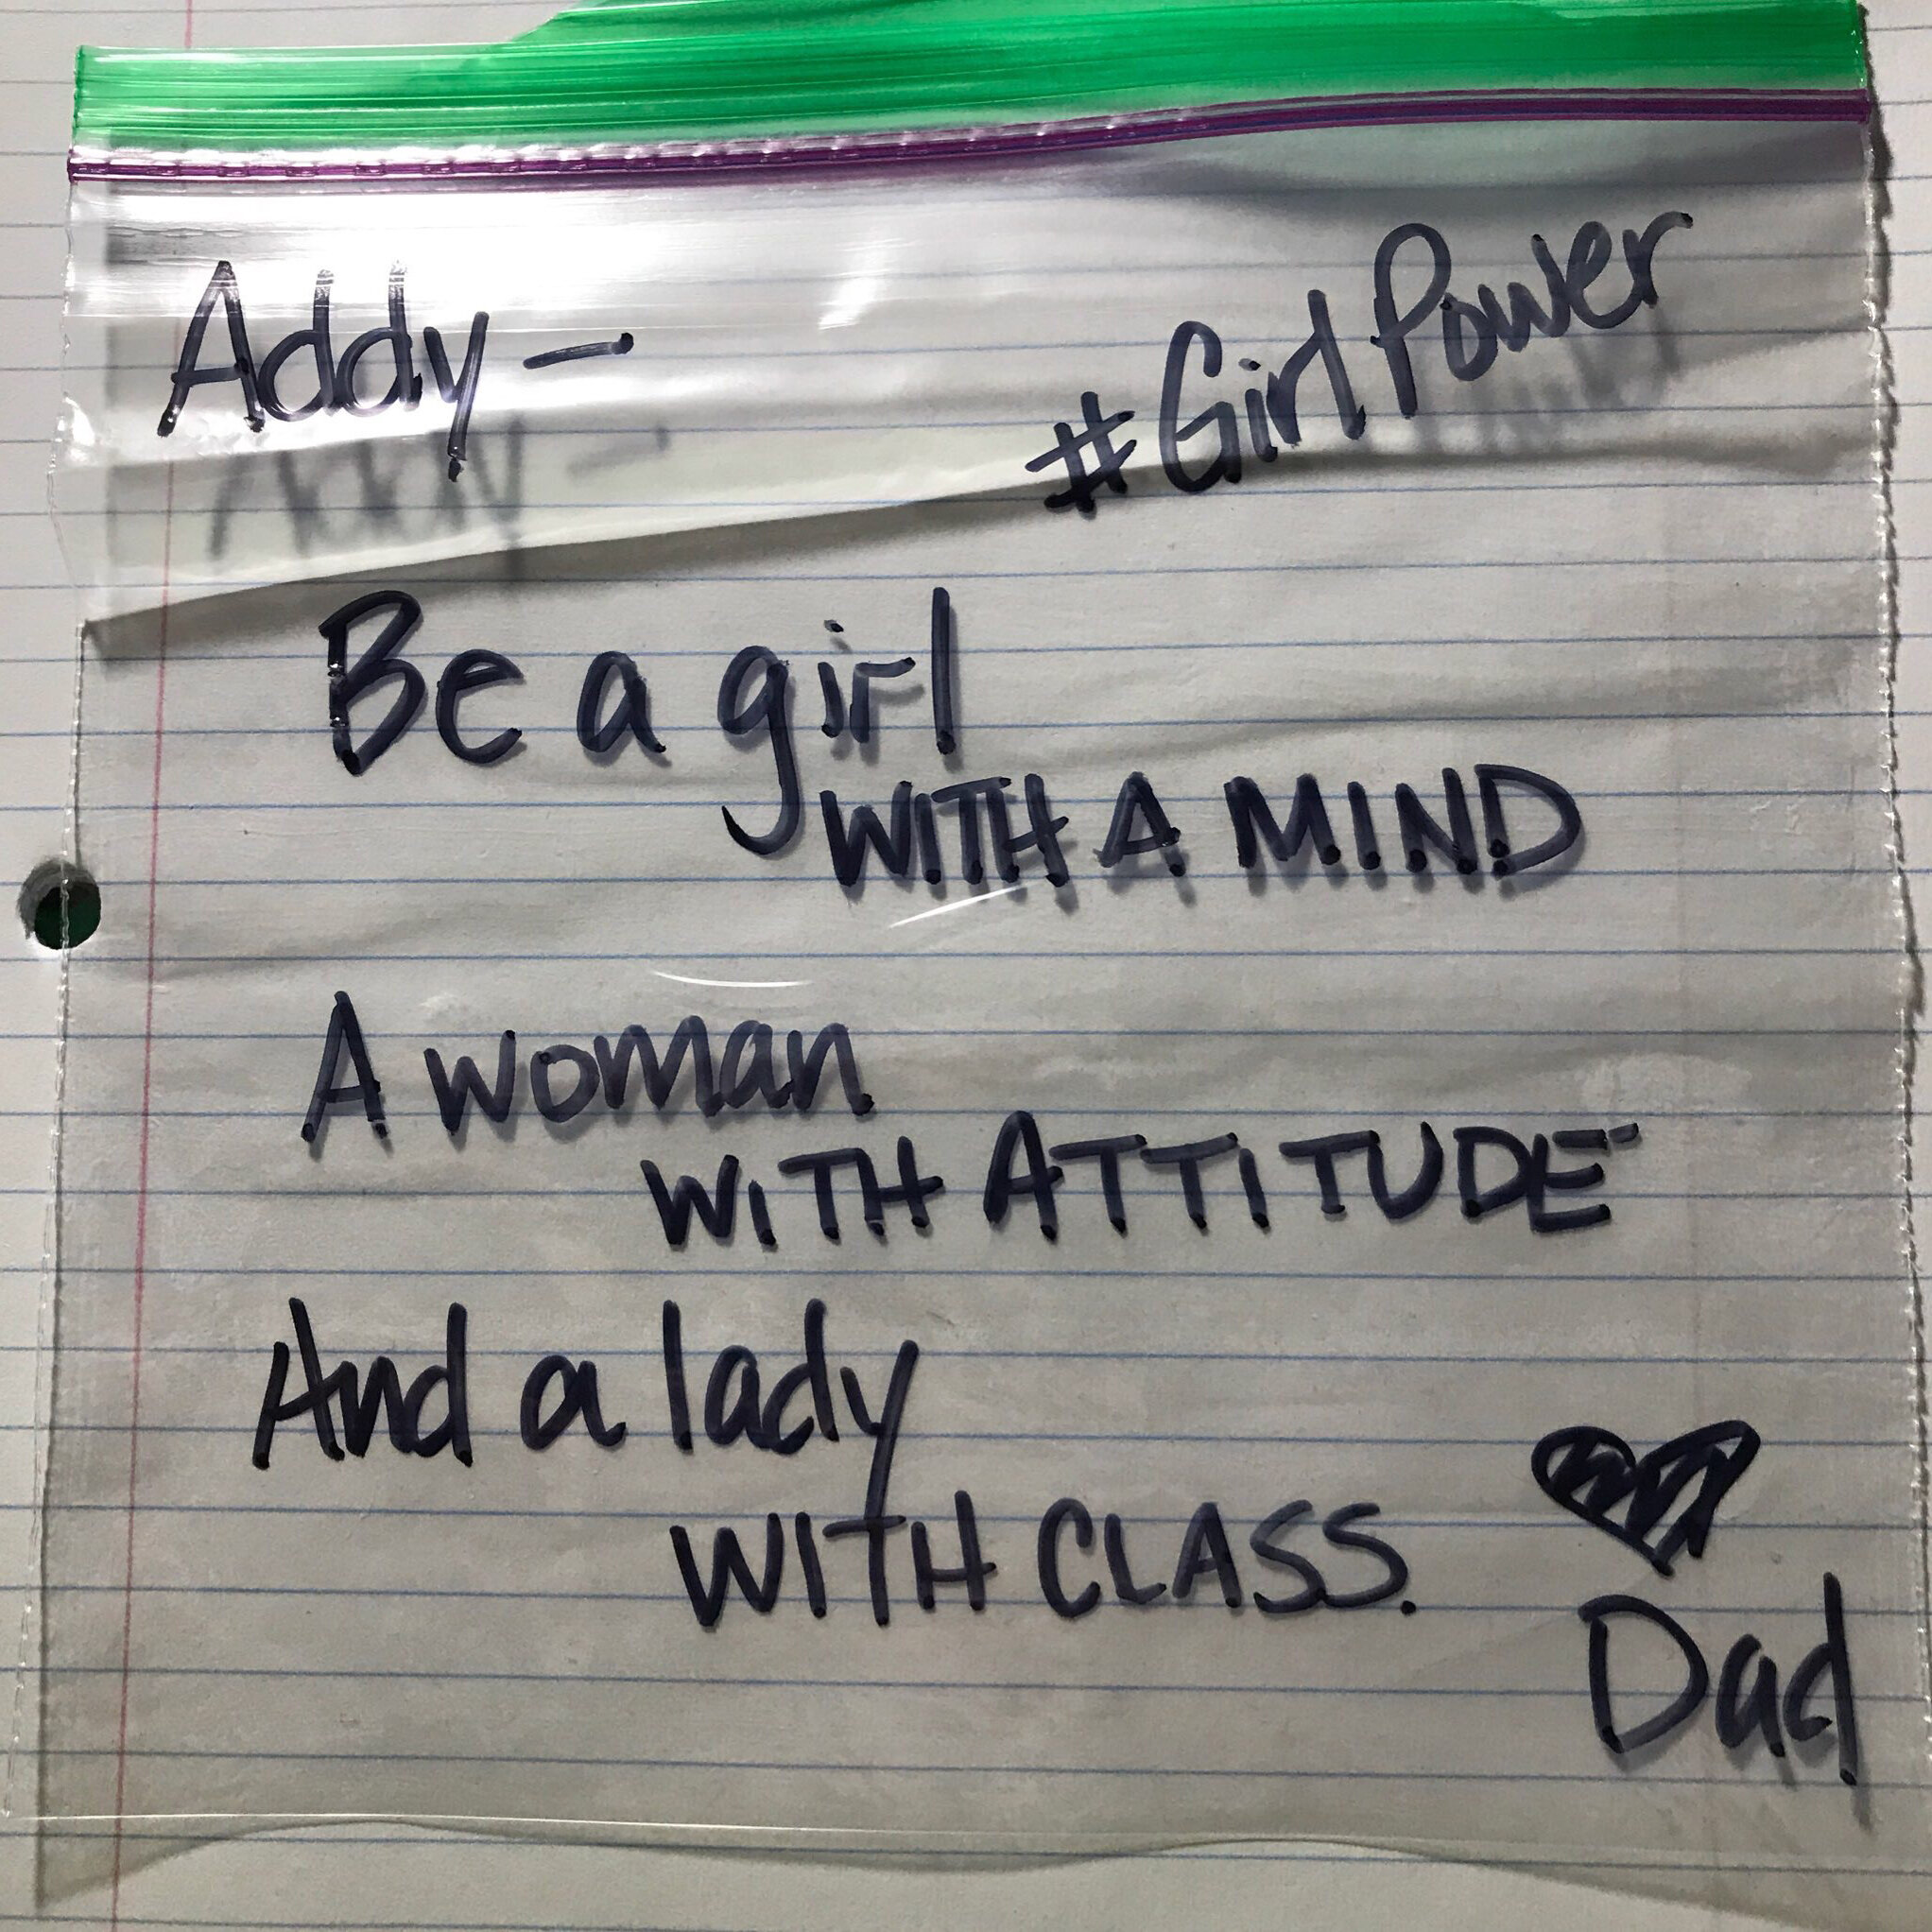 Addy -
#GirlPower
Be a girl
WITH A MIND
A woman
WITH ATTITUDE
And a lady
WITH CLASS.
Dad